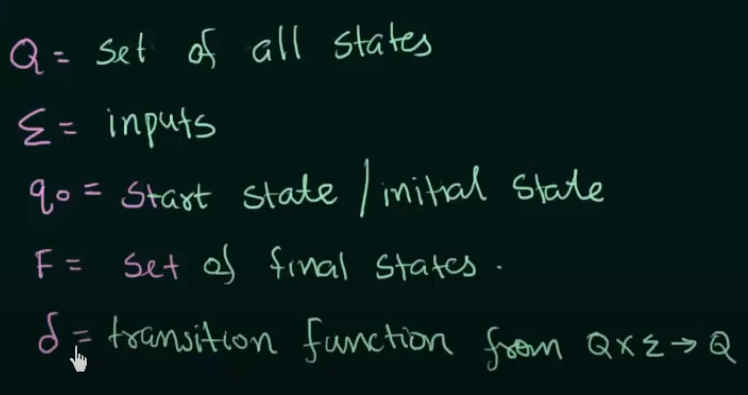 Q = set of all states
Σ = inputs
q₀ = Start state / initial state
F = set of final states.
δ = transition function from Q × Σ → Q